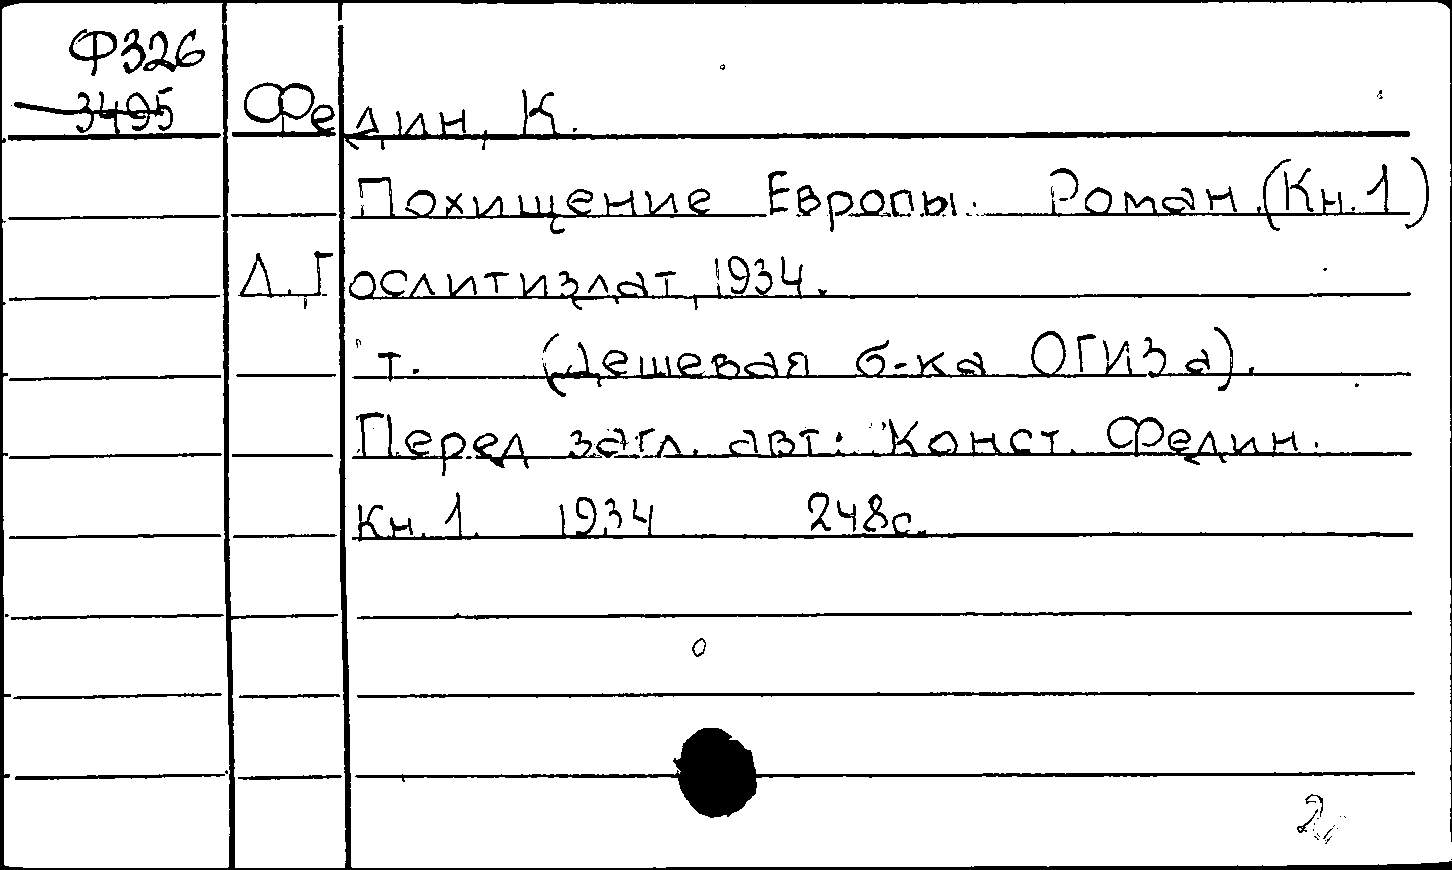 Ф326
3495
Федин, К.
Похищение Европы. Роман.(Кн.1)
Л.,Гослитиздат, 1934.
т. (Дешевая б-ка ОГИЗа).
Перед загл. авт.: Конст. Федин.
Кн.1. 1934 248с.